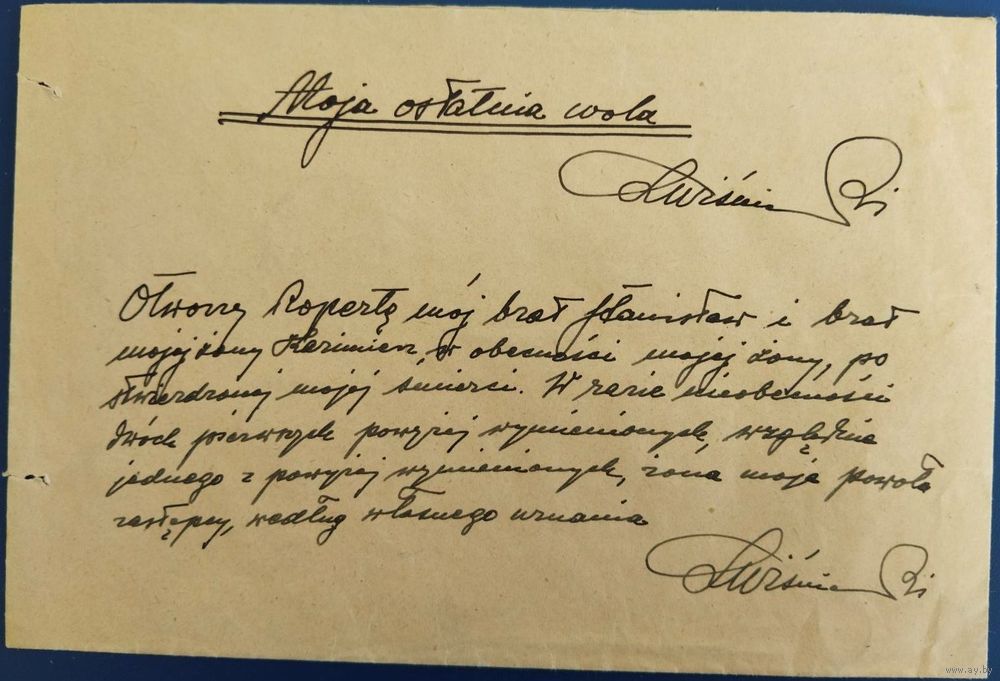 Moja ostatnia wola
Otworzy Kopertę mój brat Stanisław i brat
mojej żony Kazimierz, w obecności mojej żony, po
stwierdzonej mojej śmierci. W razie nieobecności
dwóch pierwszych powyżej wymienionych, względnie
jednego z powyżej wymienionych, żona moja powoła
zastępcy, według własnego uznania
www.ay.by